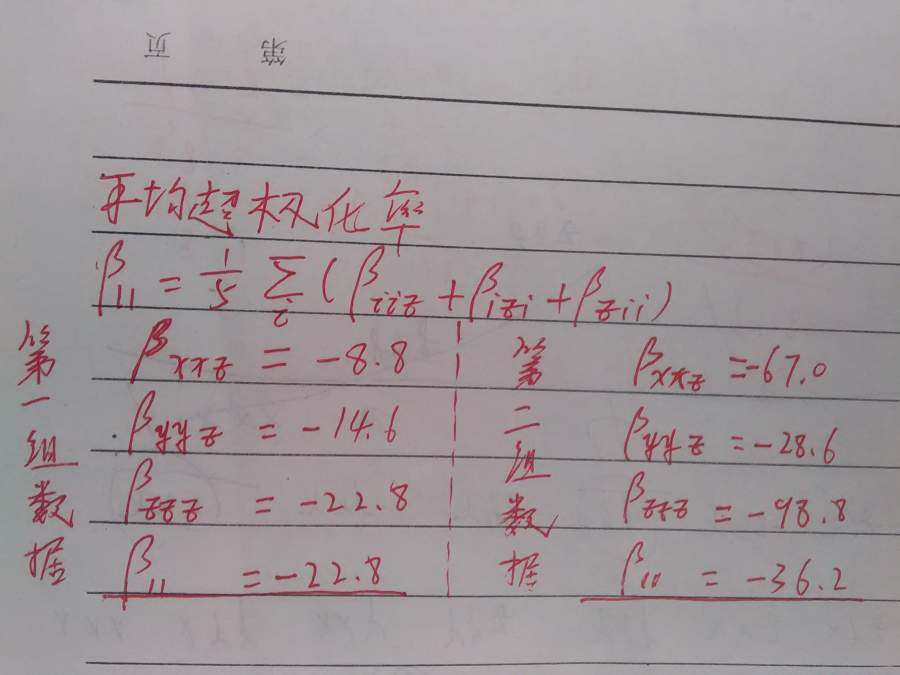 第 页
平均超极化率
β₁₁ = 1/5 Σᵢ (βᵢᵢz + βᵢzᵢ + βzᵢᵢ)
第一组数据
βxxz = -8.8
βyyz = -14.6
βzzz = -22.8
β₁₁ = -22.8
第二组数据
βxxz = -67.0
βyyz = -28.6
βzzz = -98.8
β₁₁ = -36.2